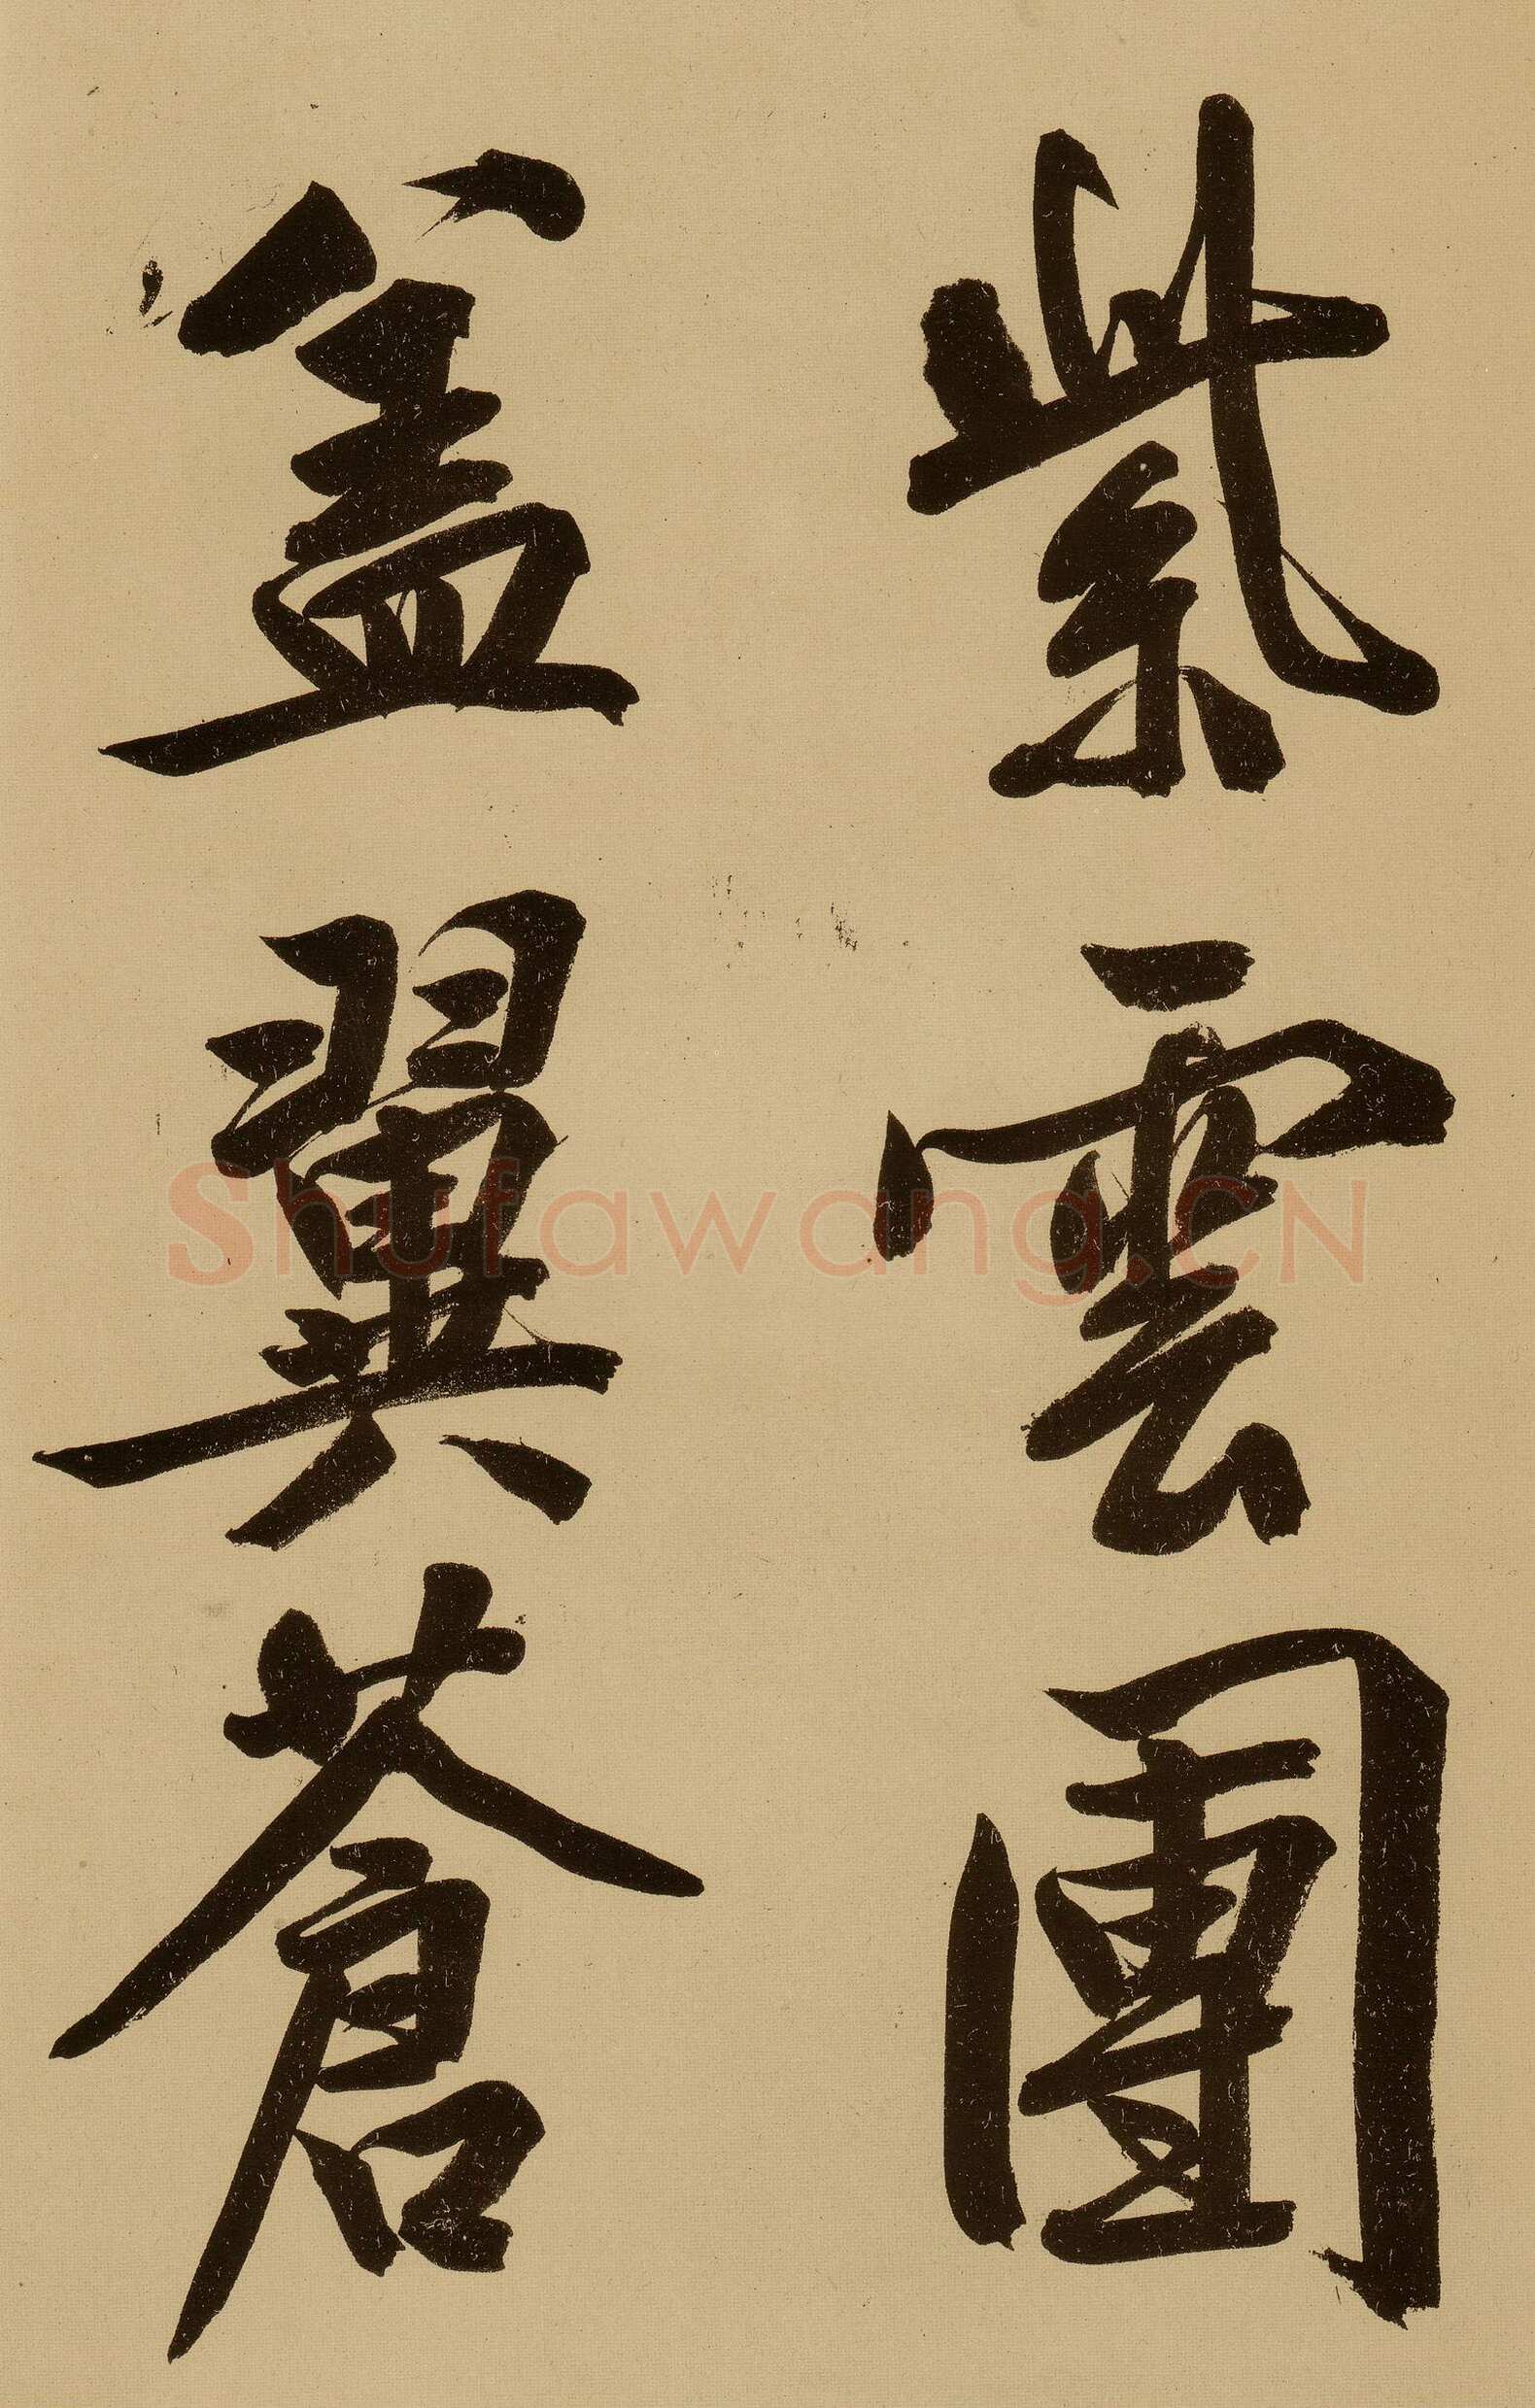 紫雲團
盖翼蒼
Shufawang.CN